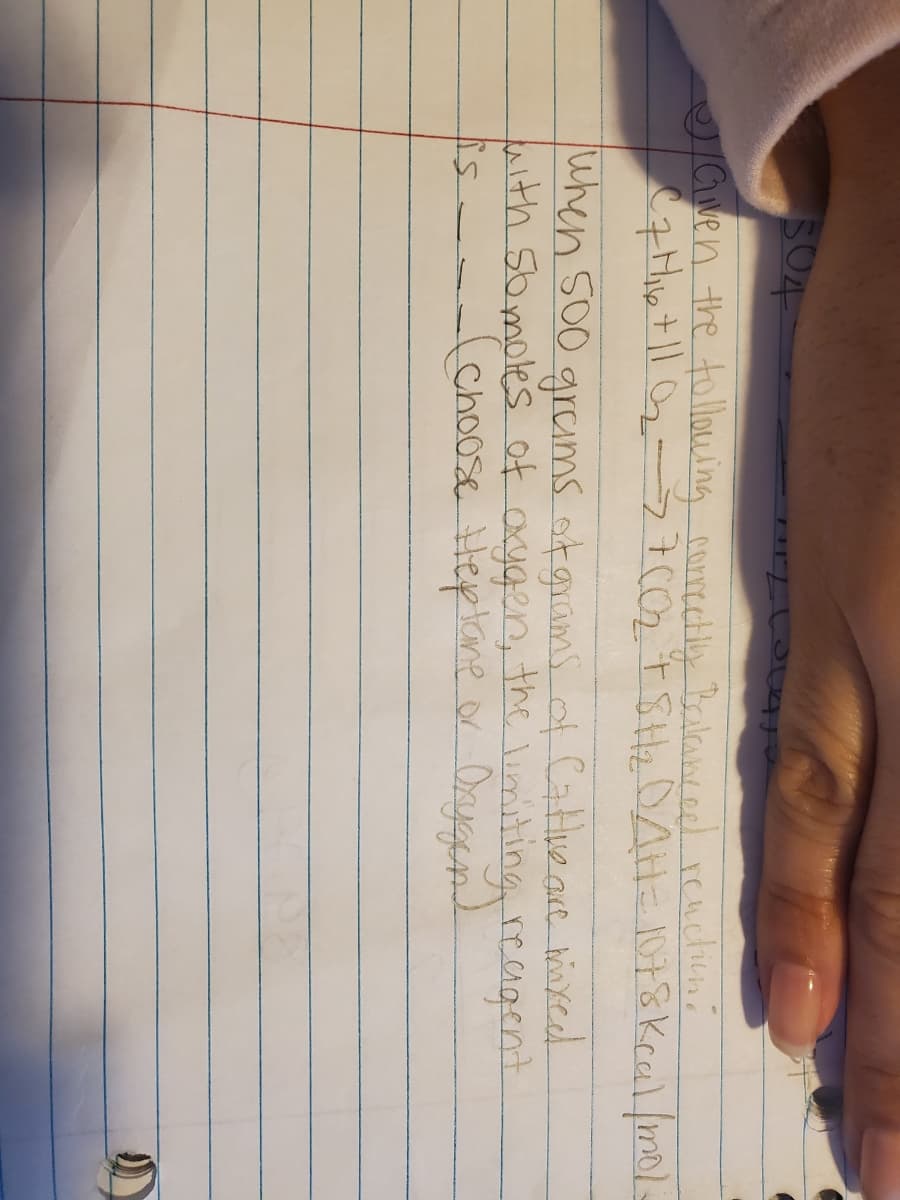 504
Given the following correctly Balanced reaction:
C7H16 + 11 O2 → 7CO2 + 8H2O ΔH = 1078 Kcal/mol.
When 500 grams of grams of C7H16 are mixed
with 56 moles of oxygen, the limiting reagent
is --- (choose Heptane or Oxygen)